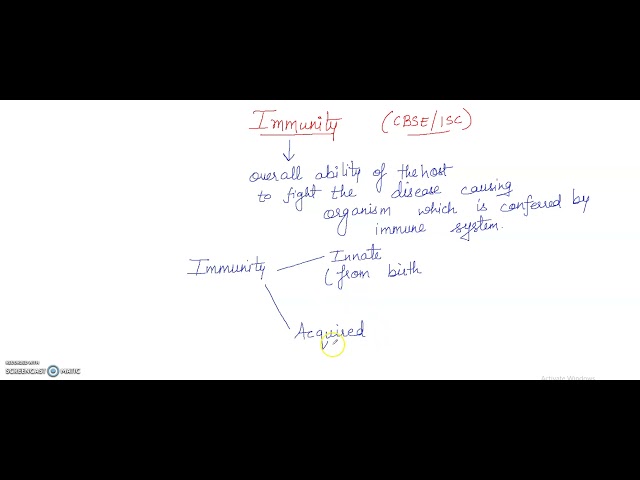 Immunity (CBSE/ISC)
overall ability of the host
to fight the disease causing
organism which is conferred by
immune system.
Immunity
Innate
(from birth
Acquired
RECORDED WITH
SCREENCAST O MATIC
Activate Windows